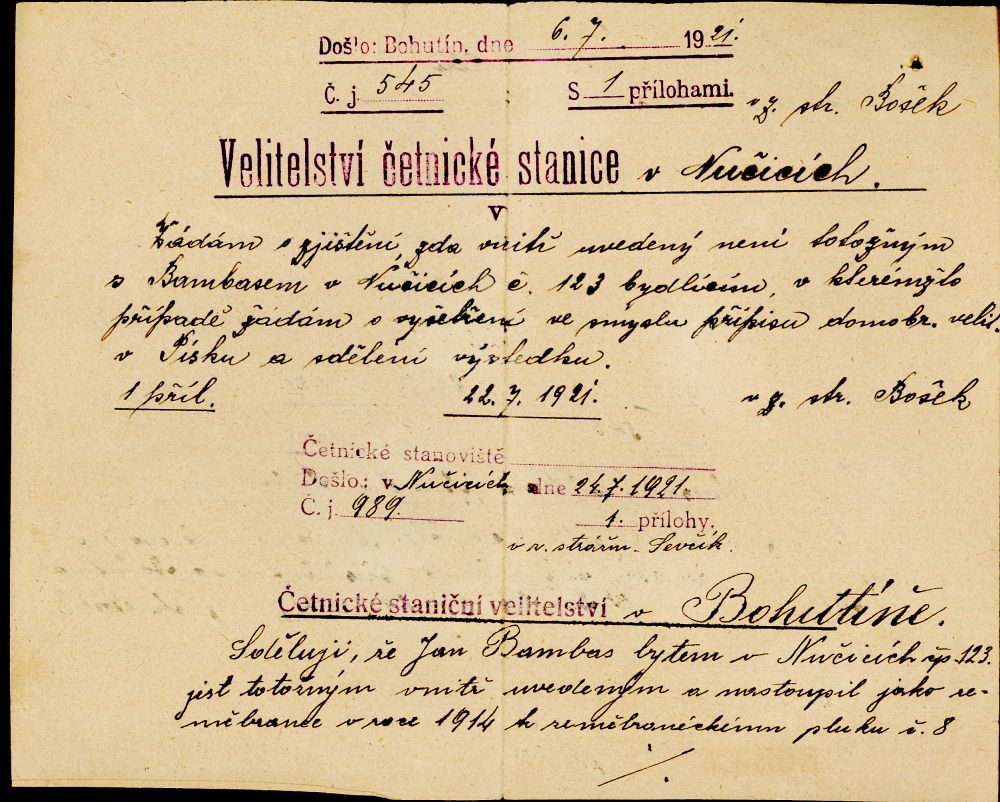 Došlo: Bohutín, dne 6. 7. 1921.
Č. j. 545 S 1 přílohami.
v z. str. Bošek
Velitelství četnické stanice v Nučicích.
v
Žádám o zjištění, zda vnitř uvedený není totožným
s Bambasem v Nučicích č. 123 bydlícím, v kterémžto
případě žádám o vyšetření ve smyslu přípisu domobr. velit.
v Písku a sdělení výsledku.
1 příl. 22. 7. 1921. v z. str. Bošek
Četnické stanoviště
Došlo: v Nučicích dne 24. 7. 1921.
Č. j. 989. 1. přílohy.
v z. strážm. Ševčík.
Četnické staniční velitelství v Bohutíně.
Sděluji, že Jan Bambas bytem v Nučicích čp. 123.
jest totožným vnitř uvedeným a nastoupil jako ze-
měbranec v roce 1914 k zeměbraneckému pluku č. 8